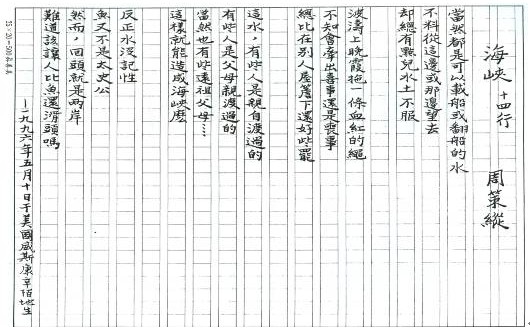 海峽 十四行
周策縱
當然都是可以載船或翻船的水
不料從這邊或那邊望去
却總有點兒水土不服
波濤上晚霞拖一條血紅的繩
不知會牽出喜事還是喪事
總比在別人屋簷下還好些罷
這水，有些人是親自渡過的
有些人是父母親渡過的
當然也有些遠祖父母…
這樣就能造成海峽麼
反正水沒記性
魚又不是太史公
然而，回頭就是兩岸
難道該讓人比魚還滑頭嗎
—一九九六年五月十日于美國威斯康辛陌地生